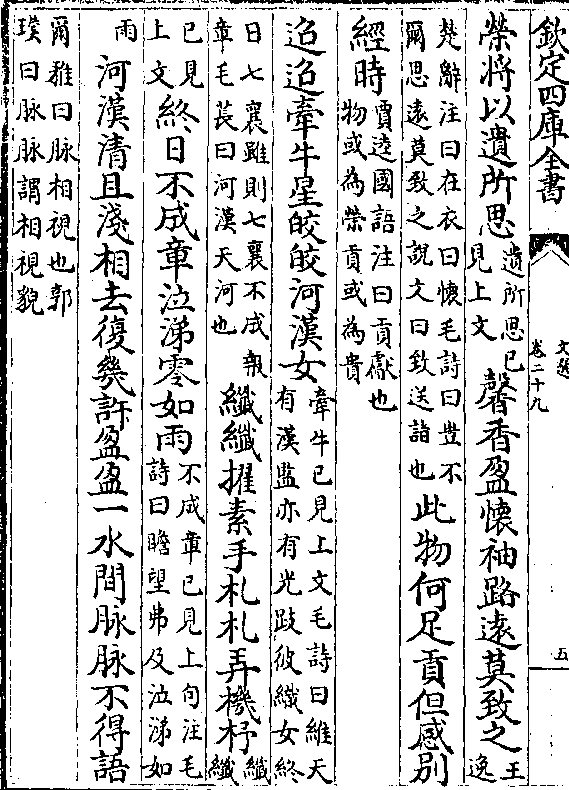 欽定四庫全書
文選
卷二十九
五
榮將以遺所思遺所思已見上文馨香盈懷袖路遠莫致之王逸
楚辭注曰在衣曰懷毛詩曰豈不爾思遠莫致之說文曰致送詣也此物何足貢但感别
經時賈逵國語注曰貢獻也物或為榮貢或為貴
迢迢牽牛星皎皎河漢女牽牛已見上文毛詩曰維天有漢監亦有光跂彼織女終
日七襄雖則七襄不成報章毛萇曰河漢天河也纖纖擢素手札札弄機杼纖纖
已見上文終日不成章泣涕零如雨不成章已見上句注毛詩曰瞻望弗及泣涕如
雨河漢清且淺相去復幾許盈盈一水間脉脉不得語
爾雅曰脉相視也郭璞曰脉脉謂相視貌